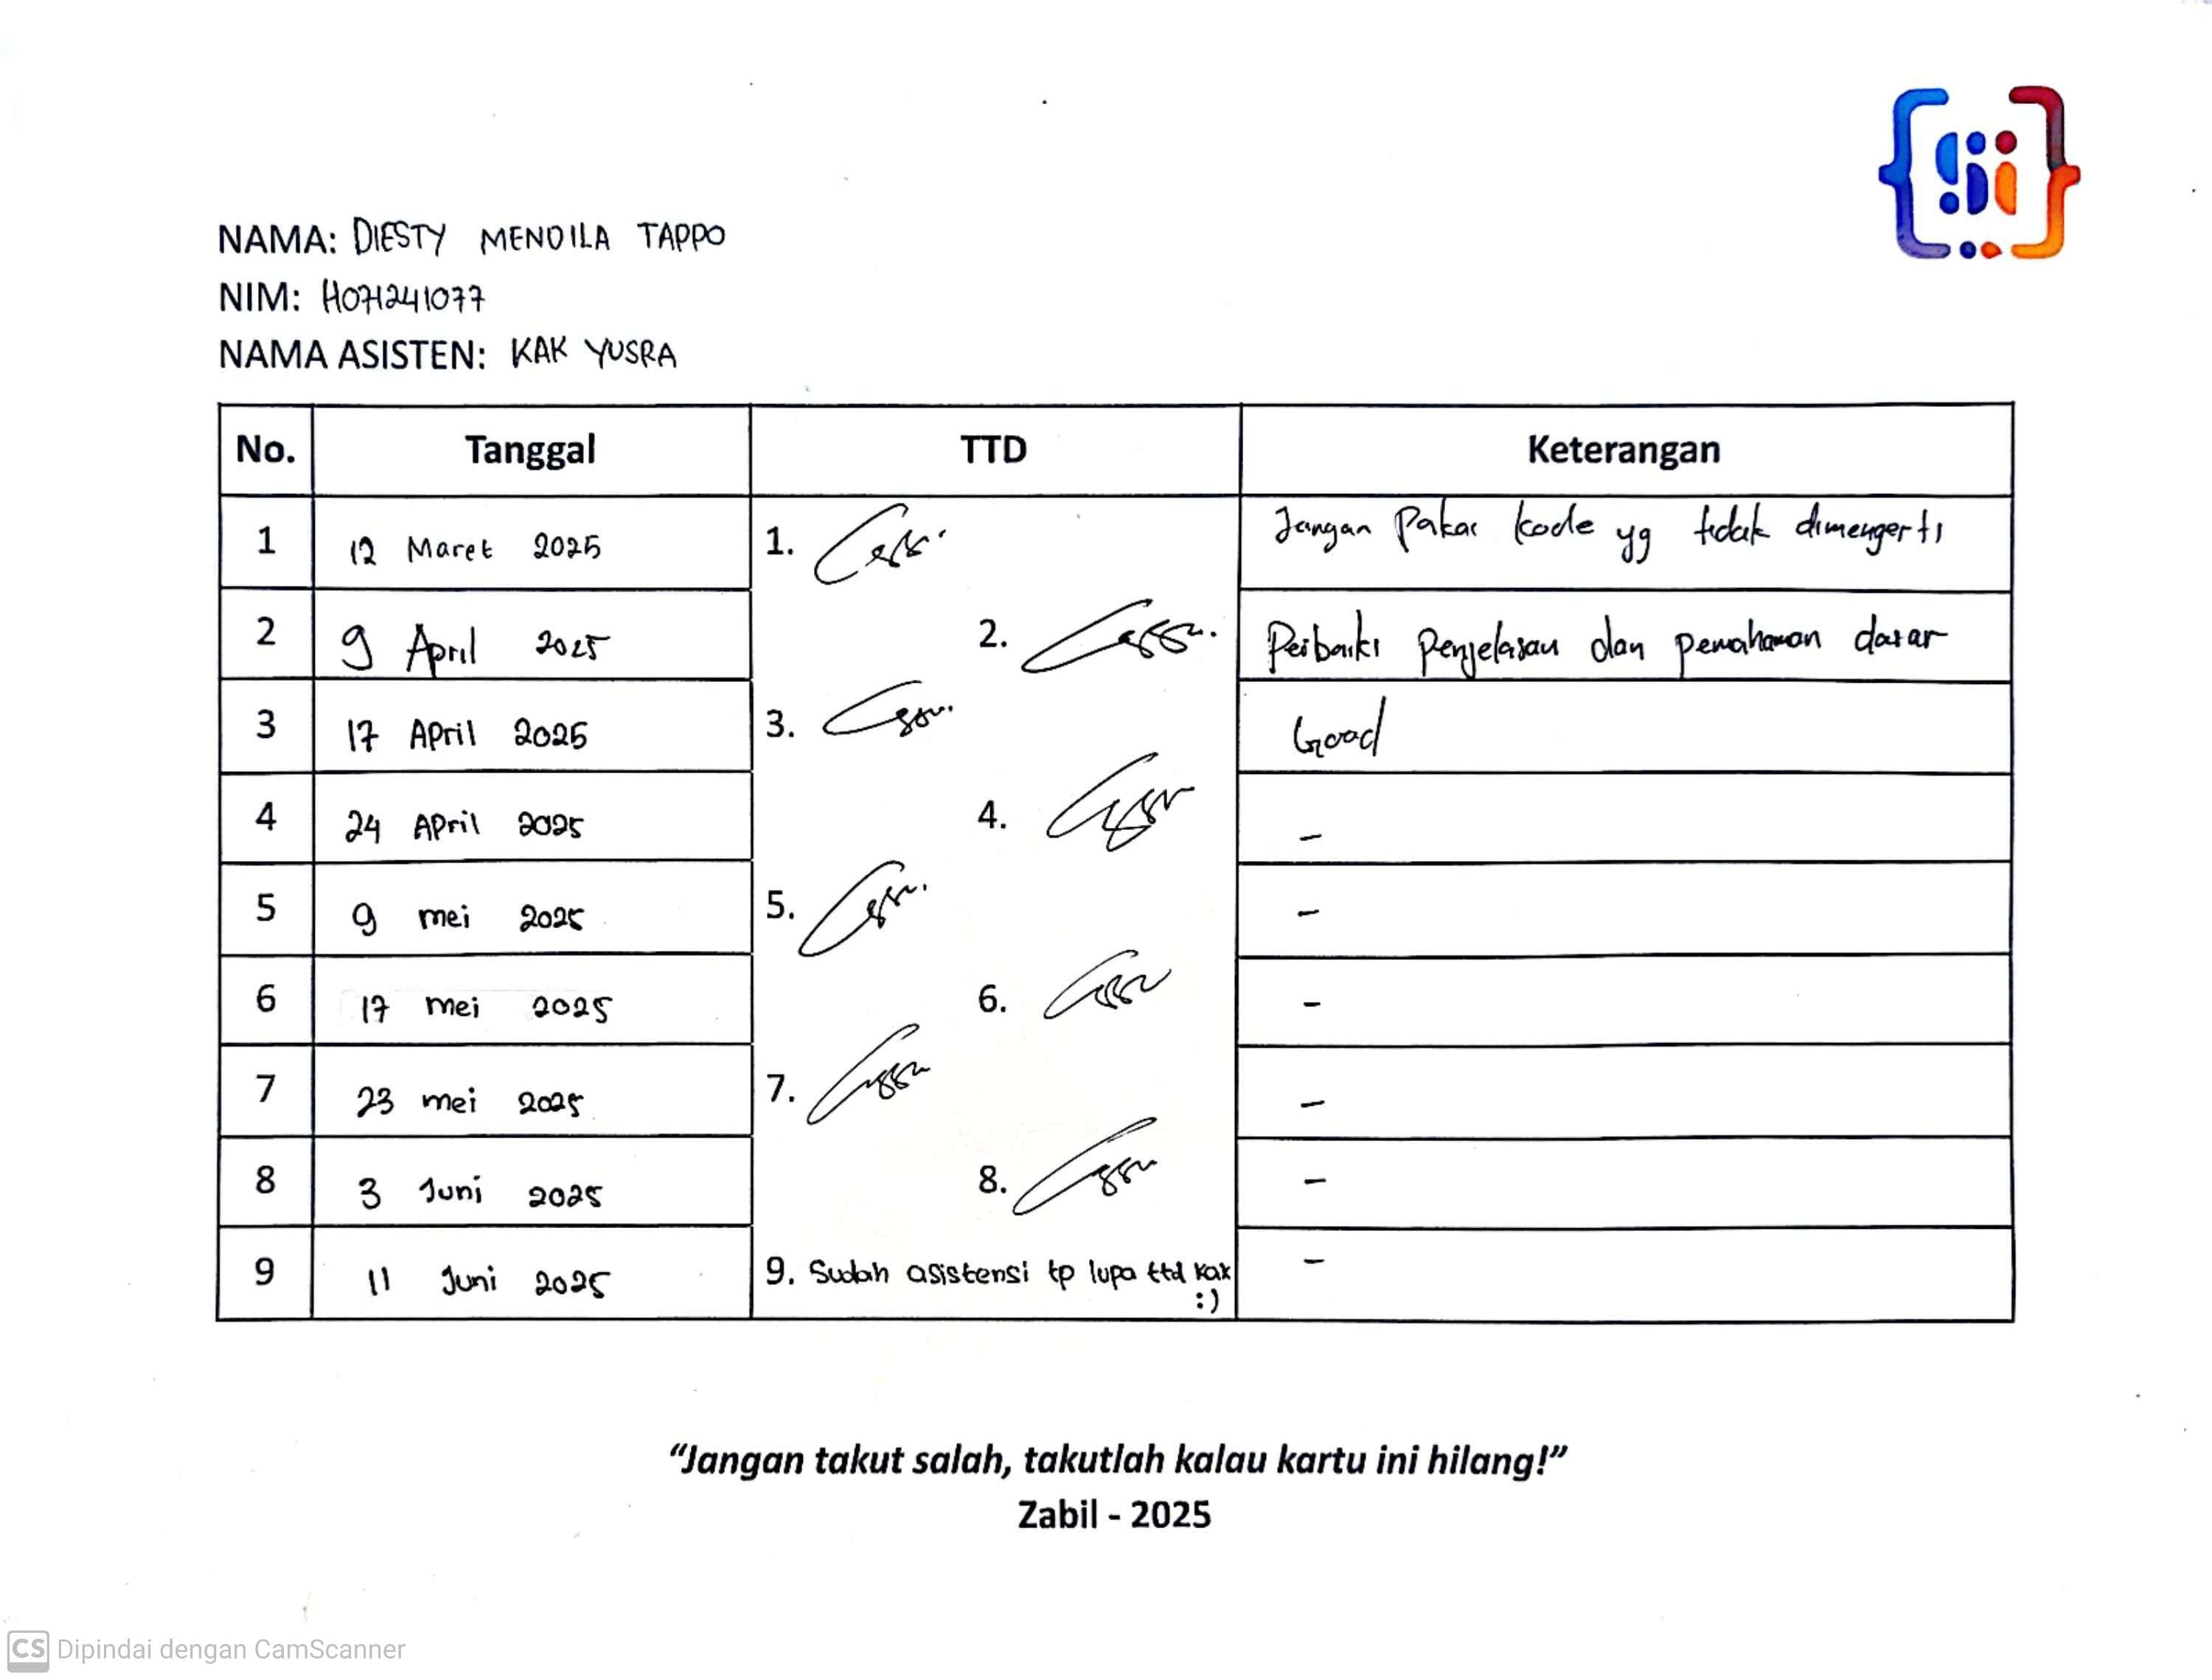 si
NAMA: DIESTY MENDILA TAPPO
NIM: H071241077
NAMA ASISTEN: KAK YUSRA
No. Tanggal TTD Keterangan
1 12 Maret 2025 1. Jangan Pakai kode yg tidak dimengerti
2 9 April 2025 2. Perbaiki Penjelasan dan pemahaman dasar
3 17 April 2025 3. Good
4 24 April 2025 4. -
5 9 mei 2025 5. -
6 17 mei 2025 6. -
7 23 mei 2025 7. -
8 3 Juni 2025 8. -
9 11 Juni 2025 9. Sudah asistensi tp lupa ttd kak :) -
“Jangan takut salah, takutlah kalau kartu ini hilang!”
Zabil - 2025
CS Dipindai dengan CamScanner